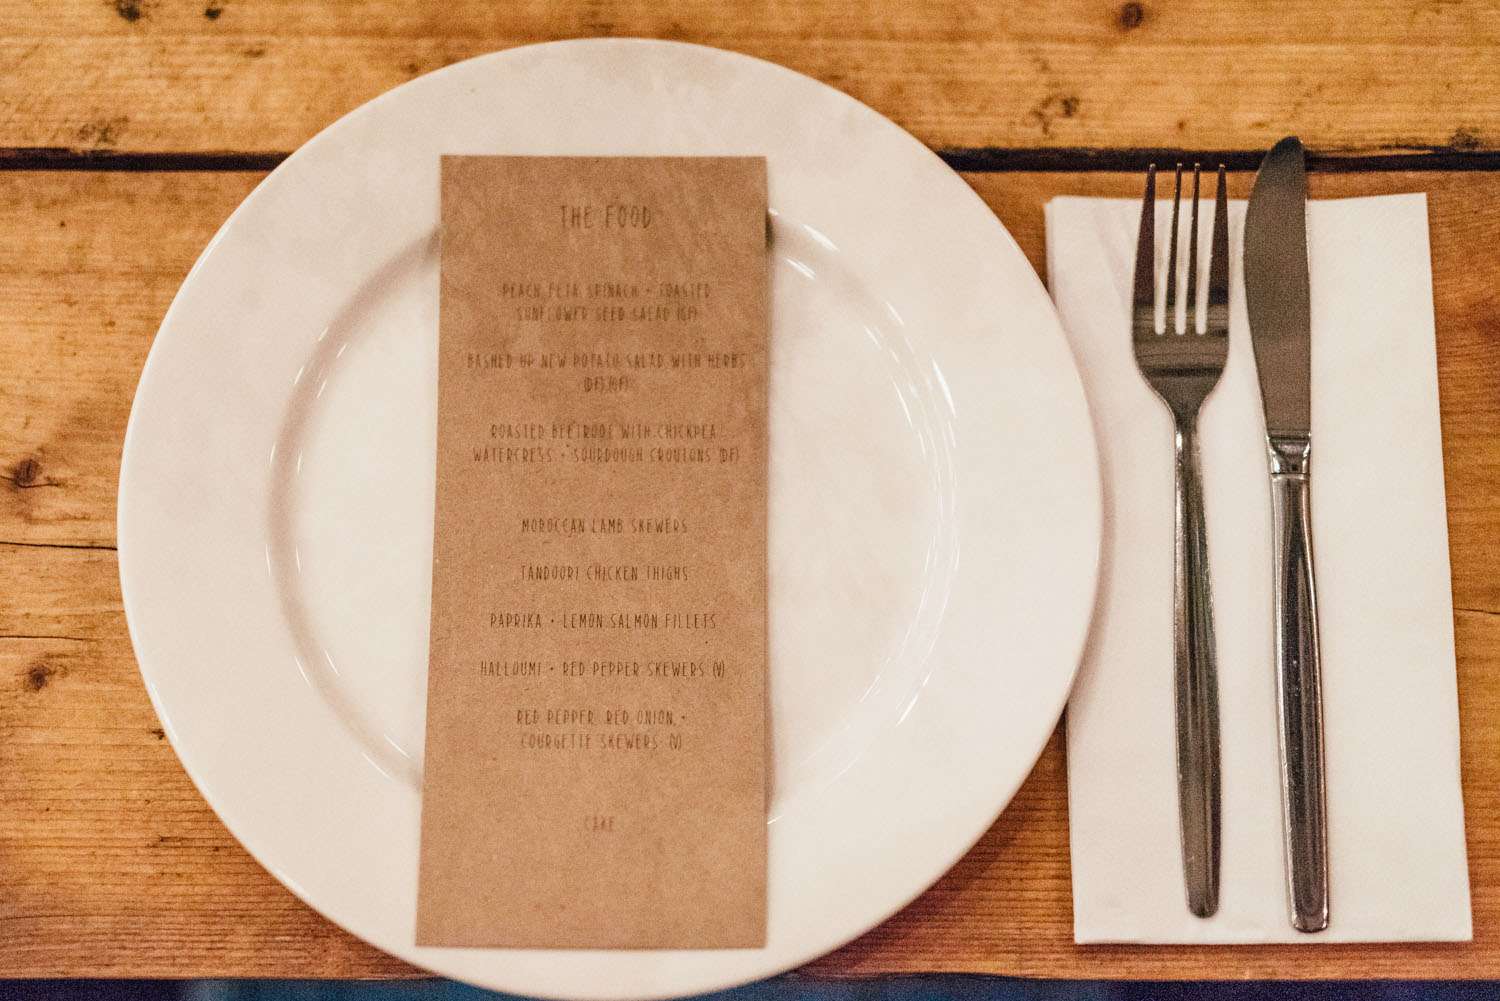 THE FOOD
PEACH FETA SPINACH + TOASTED
SUNFLOWER SEED SALAD (GF)
BASHED UP NEW POTATO SALAD WITH HERBS
(DF) (GF)
ROASTED BEETROOT WITH CHICKPEA
WATERCRESS + SOURDOUGH CROUTONS (DF)
MOROCCAN LAMB SKEWERS
TANDOORI CHICKEN THIGHS
PAPRIKA + LEMON SALMON FILLETS
HALLOUMI + RED PEPPER SKEWERS (V)
RED PEPPER, RED ONION, +
COURGETTE SKEWERS (V)
CAKE